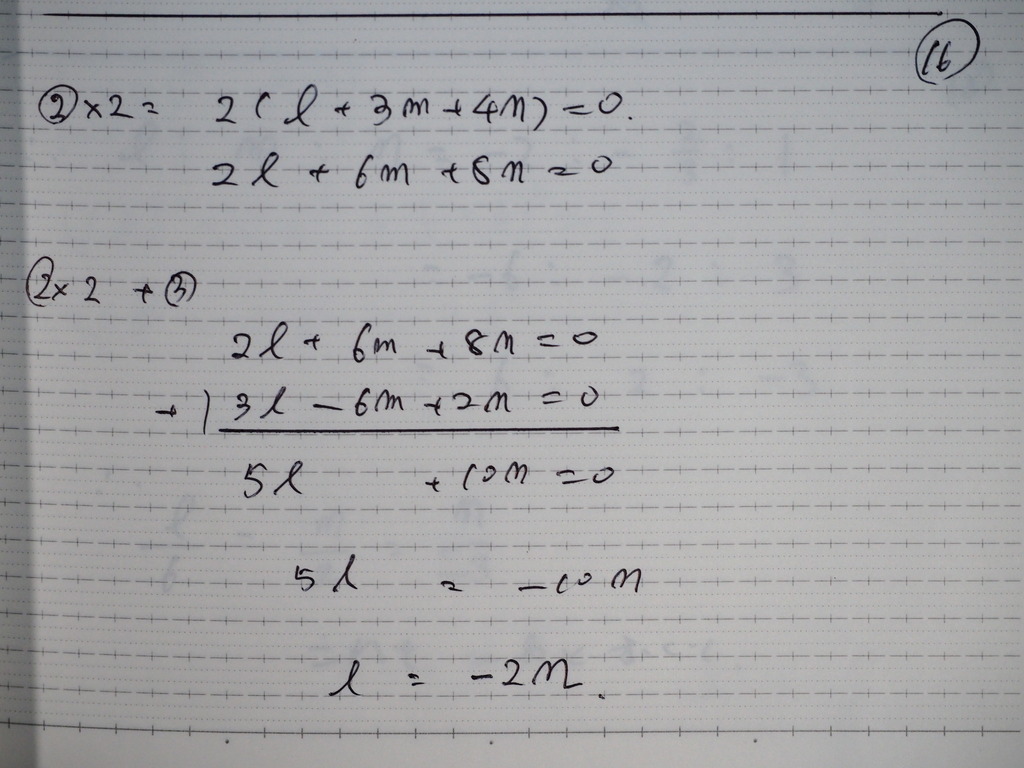 16
② × 2 = 2(l + 3m + 4n) = 0.
2l + 6m + 8n = 0
② × 2 + ③
2l + 6m + 8n = 0
+ ) 3l - 6m + 2n = 0
5l + 10n = 0
5l = -10n
l = -2n.